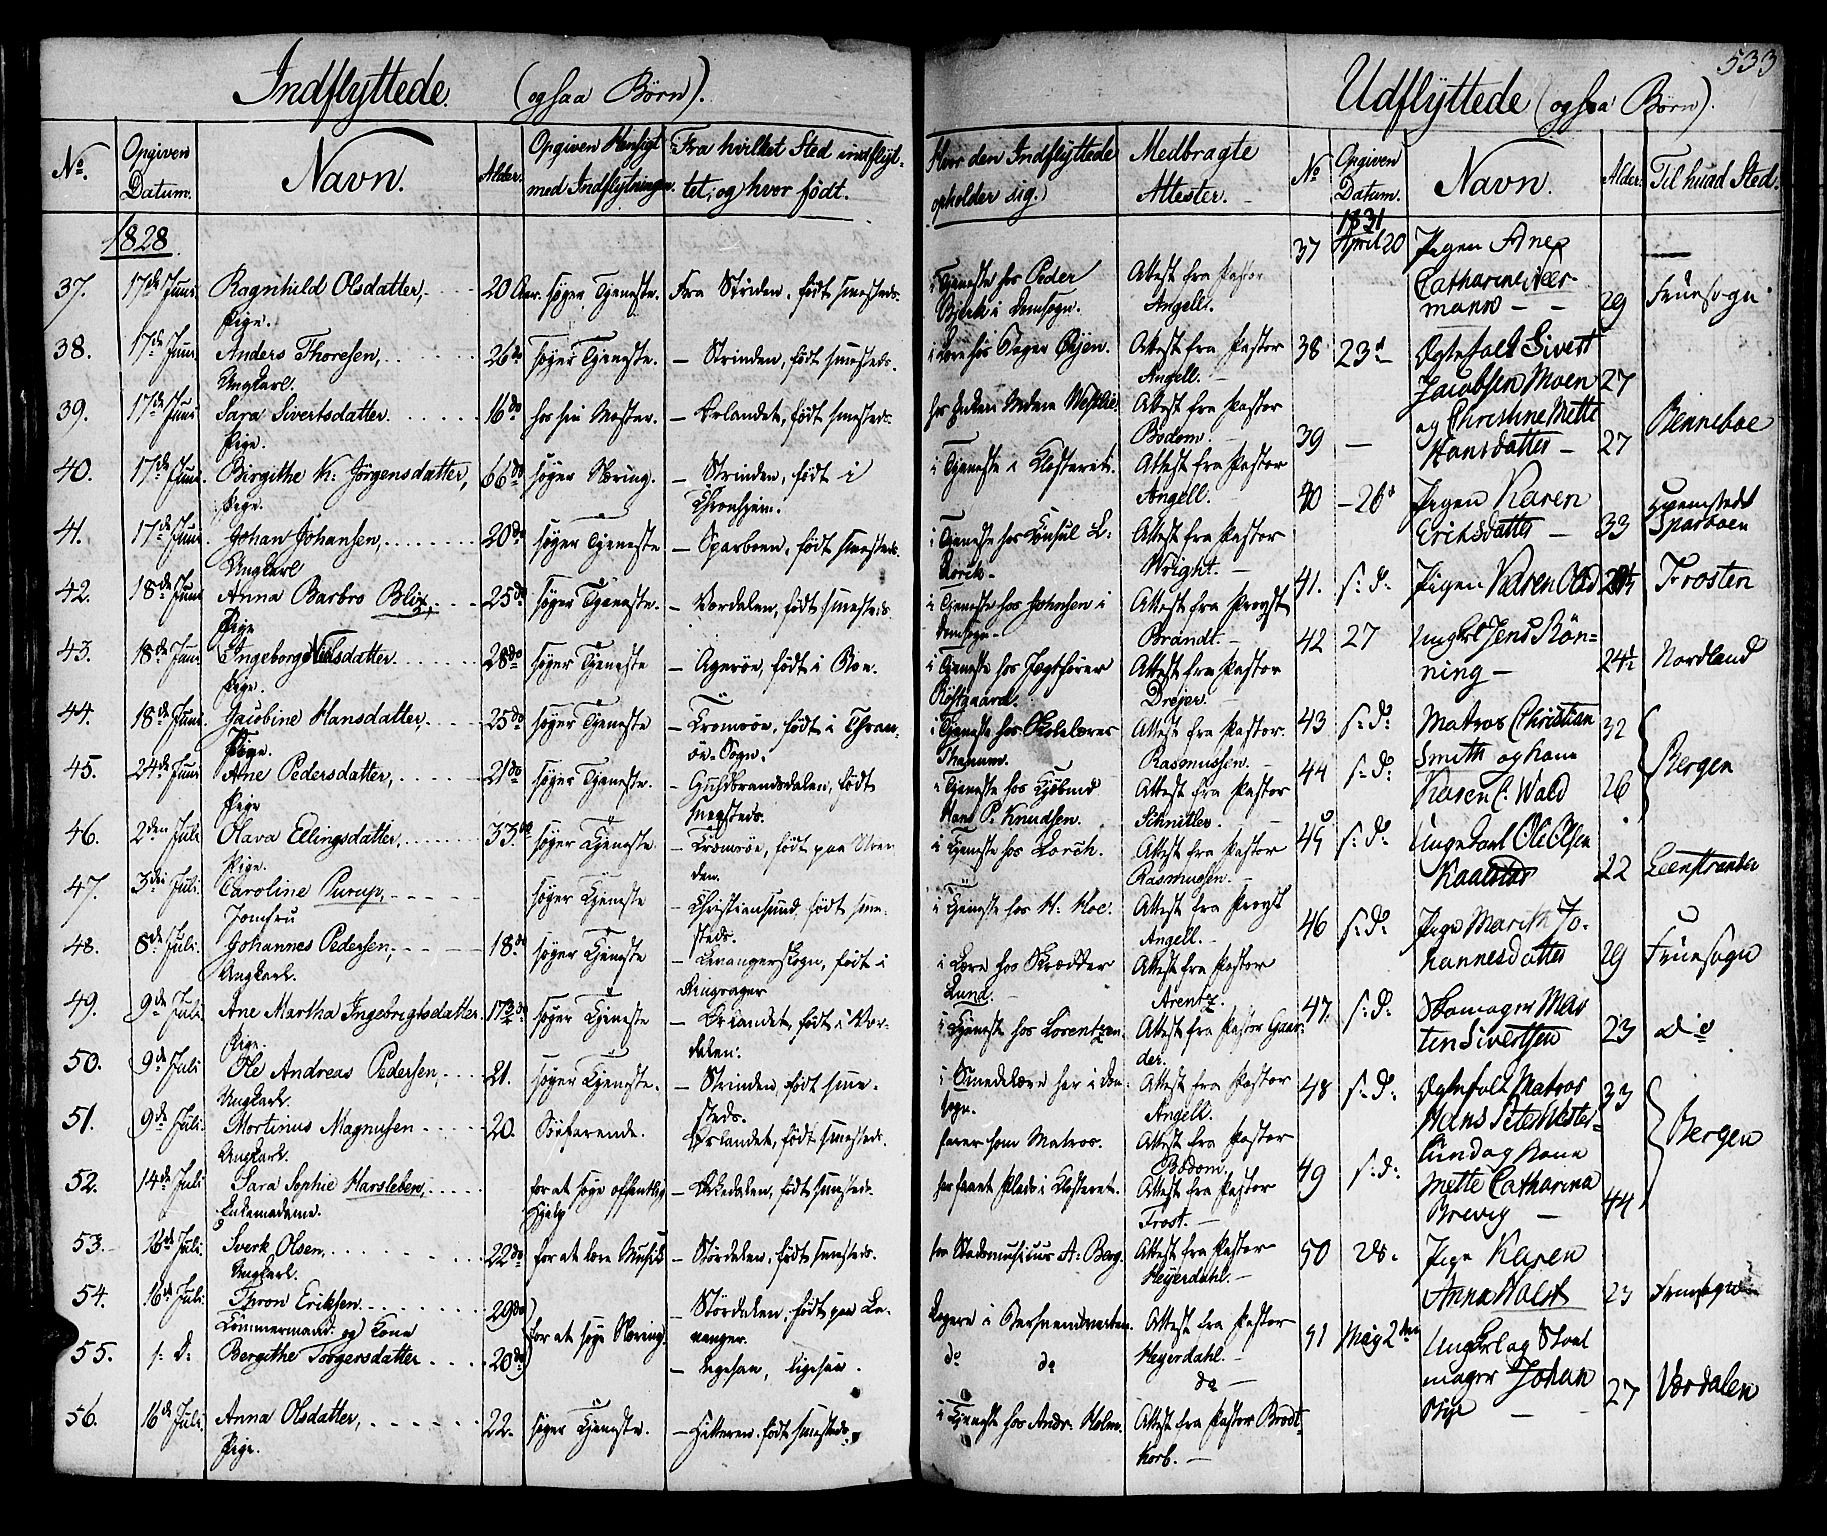 533
Indflyttede (ogsaa Børn).
Udflyttede (ogsaa Børn).
No. Opgiven Datum. Navn. Alder. Opgiven Hensigt med Indflytningen. Fra hvilket Sted indflyttet, og hvor født. Hvor den Indflyttede opholder sig. Medbragte Attester.
No Opgiven Datum. Navn. Alder. Til hvad Sted.
1828.
37. 17de Juni Ragnhild Olsdatter, Pige. 20 Aar. søger Tjeneste. Fra Strinden, født smesteds. i Tjeneste hos Peder i Domsogn. Attest fra Pastor Angell.
38. 17de Juni Anders Thoresen, Ungkarl. 26do søger Tjeneste. – Strinden, født smesteds. i Lære hos Øyen. Attest fra Pastor Angell.
39. 17de Juni Sara Sivertsdatter. Pige. 16do hos sin Moster. – Ørlandet, født smesteds. hos Enken Madme Attest fra Pastor Bodom.
40. 17de Juni. Birgithe K: Jørgensdatter, Pige. 66do søger Næring. – Strinden, født i Thronhjem. i Tjeneste i Klosteret. Attest fra Pastor Angell.
41. 17de Juni Johan Johansen, Ungkarl 20do søger Tjeneste – Sparboen, født smesteds. i Tjeneste hos Consul L: Lorck. Attest fra Pastor Wright.
42. 18de Juni Anna Barbro Blix, Pige 25do søger Tjeneste. – Værdalen, født smesteds i Tjeneste hos Johnsen i Domsogn. Attest fra Provst Brandt.
43. 18de Juni Ingeborg Nielsdatter. Pige. 28do søger Tjeneste – Agerøe, født i Boe. i Tjeneste hos Jægtfører Røstgaard. Attest fra Pastor Drejer.
44. 18de Juni. Jacobine Hansdatter, Pige. 25do søger Tjeneste – Tromsøe, født i Thranøe-Sogn. i Tjeneste hos Skolelærer Attest fra Pastor. Rasmussen.
45. 24de Juni Ane Pedersdatter, Pige 21do søger Tjeneste. – Guldbrandsdalen, født smesteds. i Tjeneste hos Kjøbmd Hans P. Knudsen. Attest fra Pastor Schnitler.
46. 2den Juli Olava Ellingsdatter, Pige. 33do søger Tjeneste – Tromsøe, født paa i Tjeneste hos Lorck. Attest fra Pastor Rasmussen.
47. 3die Juli. Caroline Purup, Jomfru søger Tjeneste – Christiansund, født smesteds. i Tjeneste hos H: Hoe. Attest fra Provst Angell.
48. 8de Juli. Johannes Pedersen, Ungkarl. 18do søger Tjeneste – Levangerskogn, født i i Lære hos Skrædder Lund. Attest fra Pastor Arentz.
49. 9de Juli. Ane Martha Ingebrigtsdatter. Pige. 17 3/4do søger Tjeneste – Ørlandet, født i Værdalen. i Tjeneste hos Lorentzen. Attest fra Pastor Gaarder.
50. 9de Juli Ole Andreas Pedersen, Ungkarl. 21. søger Tjeneste. – Strinden, født smesteds. i Smedelære her i Domsogn. Attest fra Pastor Angell.
51. 9de Juli. Mortinus Magnusen Ungkarl. 20. Søefarende. Ørlandet, født smesteds. farer som Matros. Attest fra Pastor Bodom.
52. 14de Juli Sara Sophie Harsleben, Enkemadame. for at søge offentlig Hjelp – Orkedalen, født smesteds. har faaet Plads i Klosteret. Attest fra Pastor Frost.
53. 16de Juli. Sverk Olsen, Ungkarl. 22do for at lære Musik – Størdalen, født smesteds. hos Stadsmusicus A: Berg. Attest fra Pastor Heyerdahl.
54. 16de Juli. Thron Eriksen. Tømmermand. og Kone 29do for at søge Næring. – Størdalen, født paa Levanger. Logere i Attest fra Pastor Heyerdahl.
55. s: D: Bergithe Torgersdatter 20do – ligesaa, ligesaa. do do do
56. 16de Juli. Anna Olsdatter, Pige. 22. søger Tjeneste. – Hitteren. født smesteds. i Tjeneste hos Andr. Holm. Attest fra Pastor Brodtkorb.
1831
37 April 20 Pigen Ane Catharine Nermann 29 Fruesogn
38 23d Ægtefolk Sivert Jacobsen Moen 27
39 – og Christine Mette Hansdatter 27 Benneboe
40 –26d Pigen Karen Eriksdatter 33 Hjemstedt Sparboen
41. s: d: Pigen Karen Olsd Frosten
42 27 Ungkl Jens Rönning 24½ Nordland
43 s: d: Matros Christian Smith og Kone 32
44 s: d: Karen C. Wald 26 Bergen
45 s: d: Ungekarl Ole Olsen 22 Leenstranden
46 s: d: Pige Marith Johannesdatter 29 Fruesogn
47. s: d: Skomager Marten Sivertsen 23 do
48 s: d: Ægtefolk Matros Hans Peter Westerlund og Kone 33
49 s: d: Mette Catharina Brevig 44 Bergen
50 28. Pige Karen Anna Holst 23 Fruesogn
51 May 2den Ungkrl og Skomager Johan 27 Værdalen